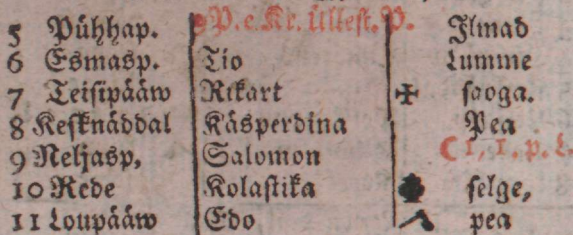 5 Pühhap. P. e. Kr. üllest. P. Ilmad
6 Esmasp. Tio Lumme
7 Teisipääw Rikart sooga.
8 Keſknäddal Käsperdina Pea
9 Neljasp, Salomon ☾ 1, 1. p. L.
10 Rede Kolaſtika ſelge,
11 Loupääw Edo pea